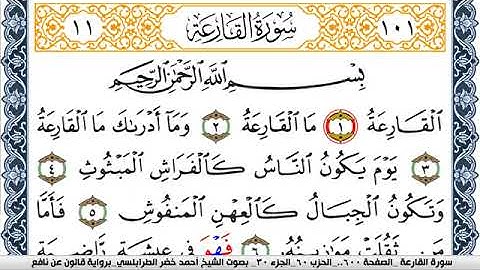 ١١ سُورَةُ القَارِعَةِ ١٠١
بِسْمِ اللَّهِ الرَّحْمَٰنِ الرَّحِيمِ
اَ۬لْقَارِعَةُ ١ مَا اَ۬لْقَارِعَةُ ٢ وَمَآ أَدْر۪ىٰكَ مَا اَ۬لْقَارِعَةُ
٣ يَوْمَ يَكُونُ اُ۬لنَّاسُ كَالْفَرَاشِ اِ۬لْمَبْثُوثِ ٤
وَتَكُونُ اُ۬لْجِبَالُ كَالْعِهْنِ اِ۬لْمَنفُوشِ ٥ فَأَمَّا
مَن ثَقُلَتْ مَوَٰزِينُهُۥ ٦ فَهْوَ فِے عِيشَةٖ رَّاضِيَةٖ
سورة القارعة _الصفحة ٦٠٠_ الحزب ٦٠_الجزء ٣٠_ بصوت الشيخ أحمد خضر الطرابلسي_برواية قالون عن نافع